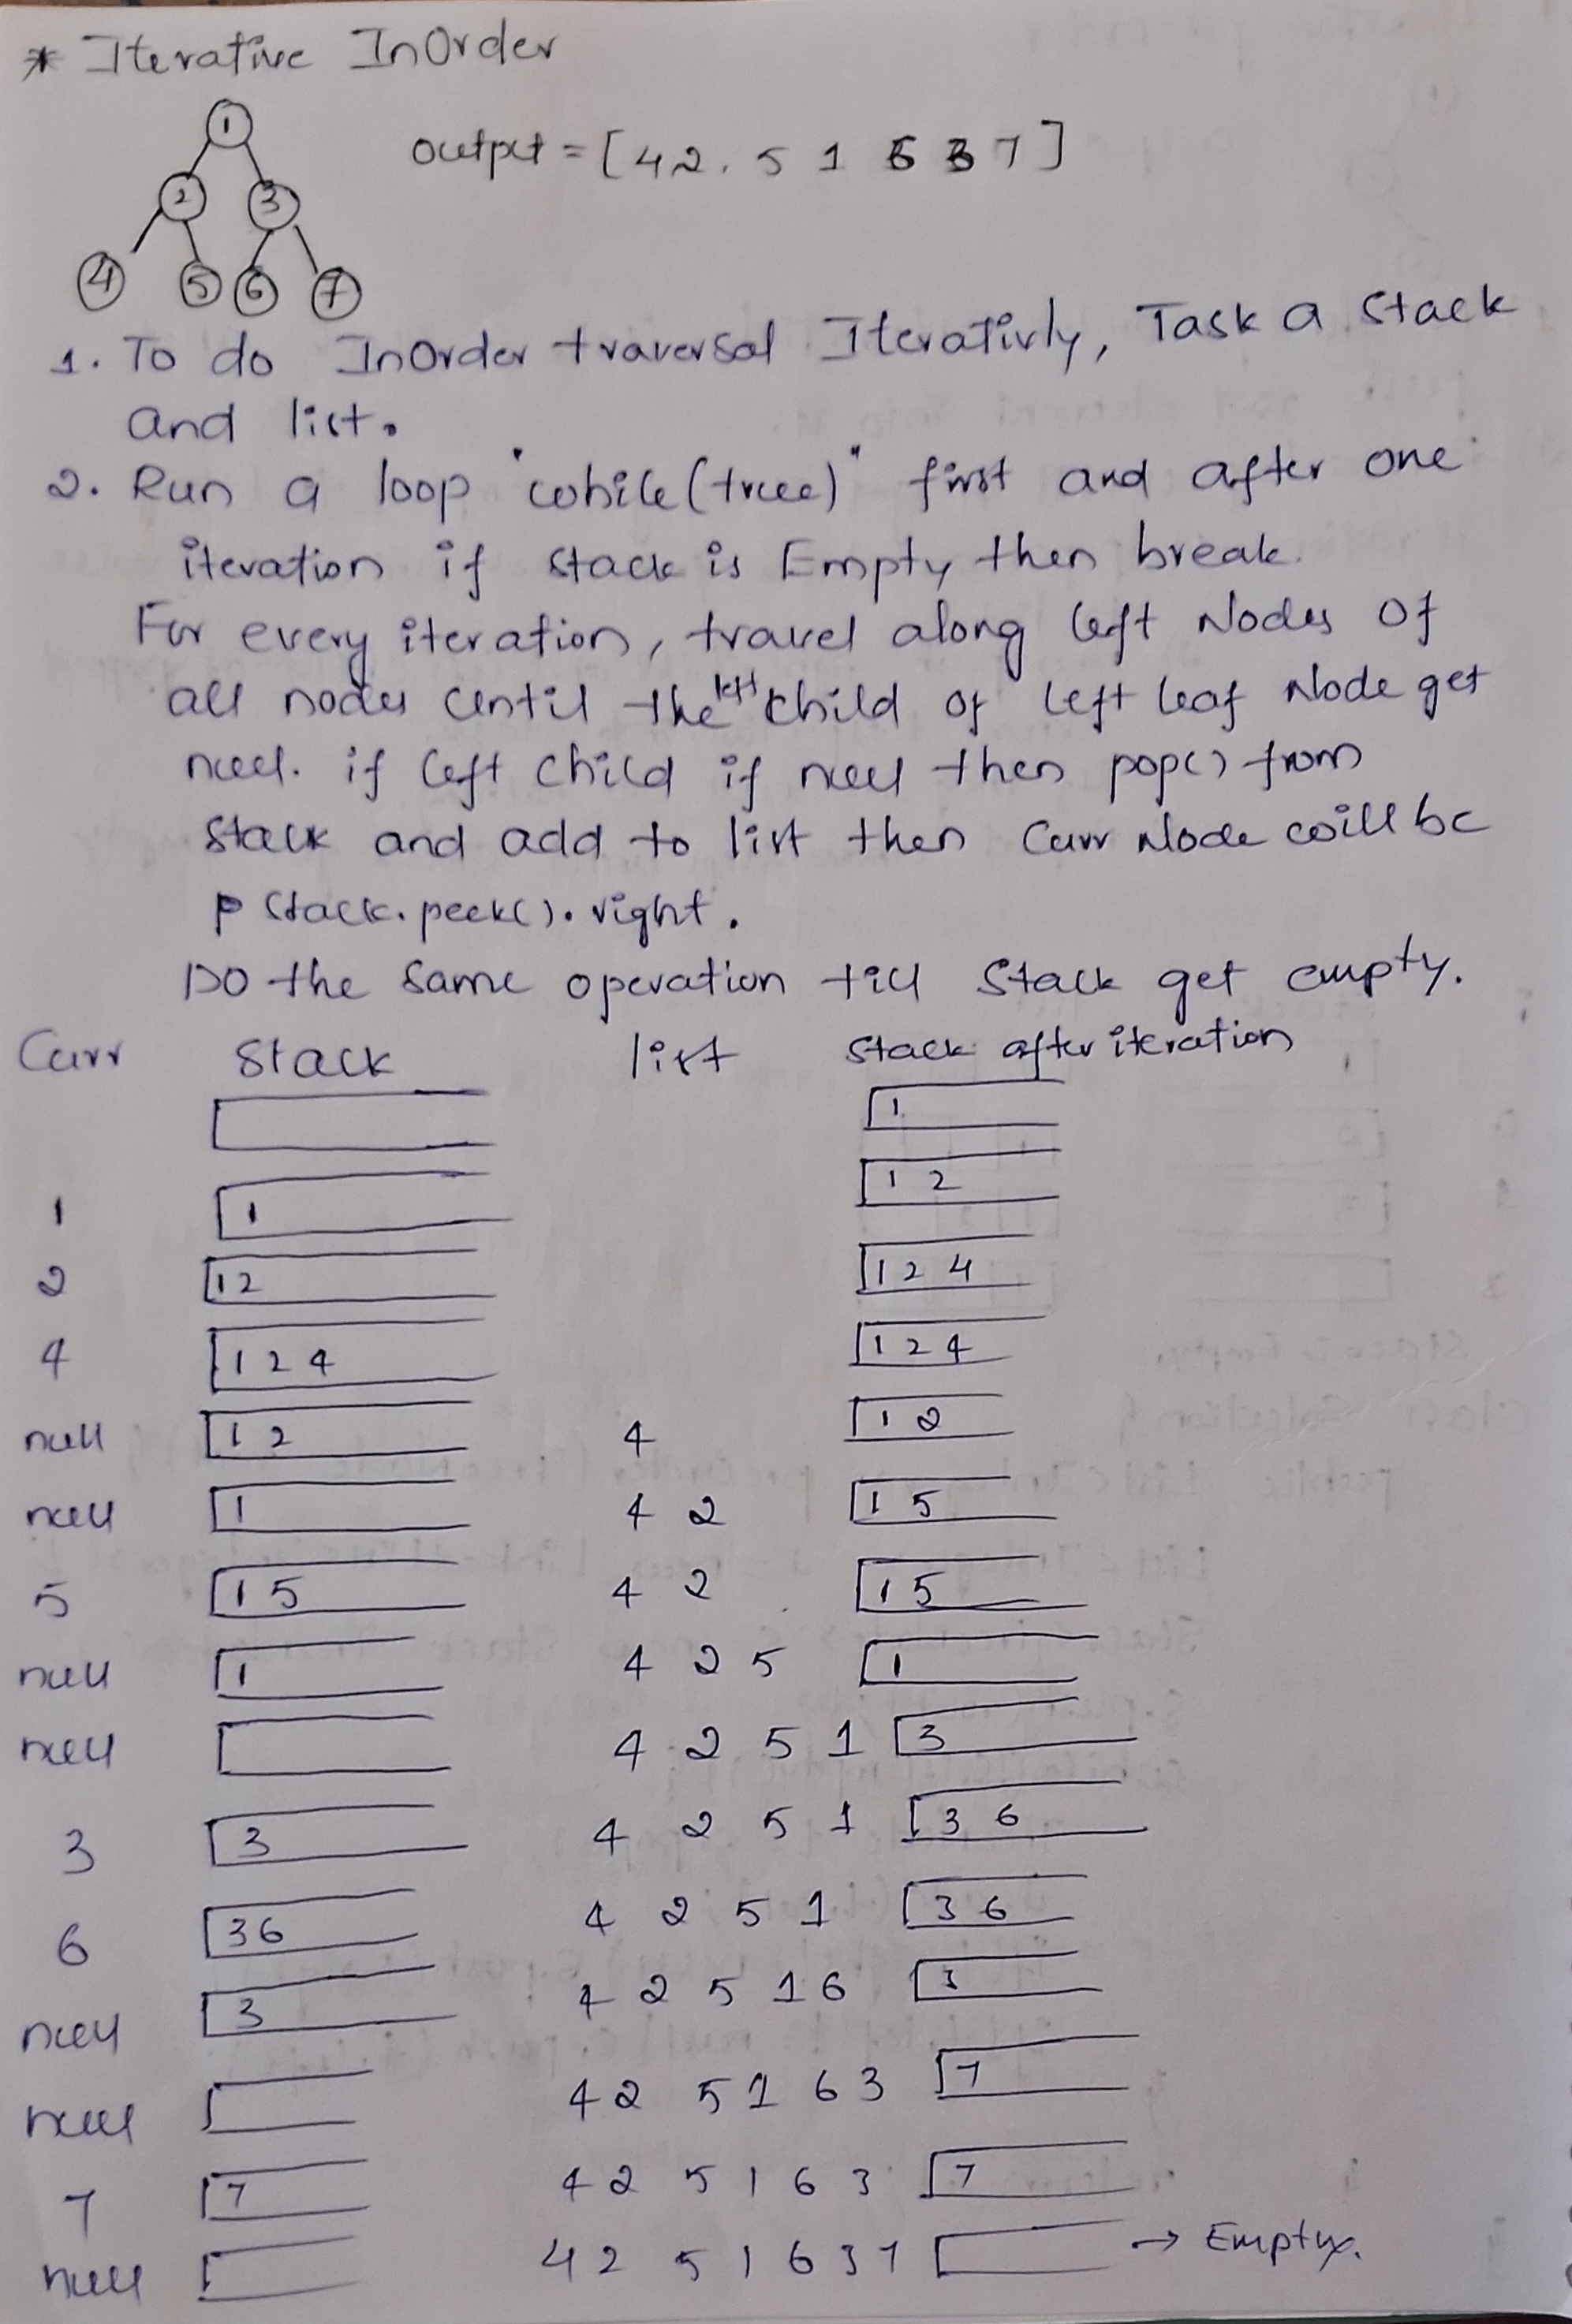 * Iterative InOrder
1
output = [ 4 2 . 5 1 6 3 7 ]
2 3
4 5 6 7
1. To do InOrder traversal Iterativly, Task a stack
and list.
2. Run a loop "while(true)" first and after one
iteration if stack is Empty then break.
For every iteration, travel along left Nodes of
all nodes until the left child of left leaf Node get
null. if left child if null then pop() from
stack and add to list then Curr Node will be
p stack.peek().right.
Do the same operation till Stack get empty.
Curr Stack list stack after iteration
1
1 1 1 2
2 1 2 1 2 4
4 1 2 4 1 2 4
null 1 2 4 1 2
null 1 4 2 1 5
5 1 5 4 2 1 5
null 1 4 2 5 1
null 4 2 5 1 3
3 3 4 2 5 1 3 6
6 3 6 4 2 5 1 3 6
null 3 4 2 5 1 6 3
null 4 2 5 1 6 3 7
7 7 4 2 5 1 6 3 7
null 4 2 5 1 6 3 7 → Empty.